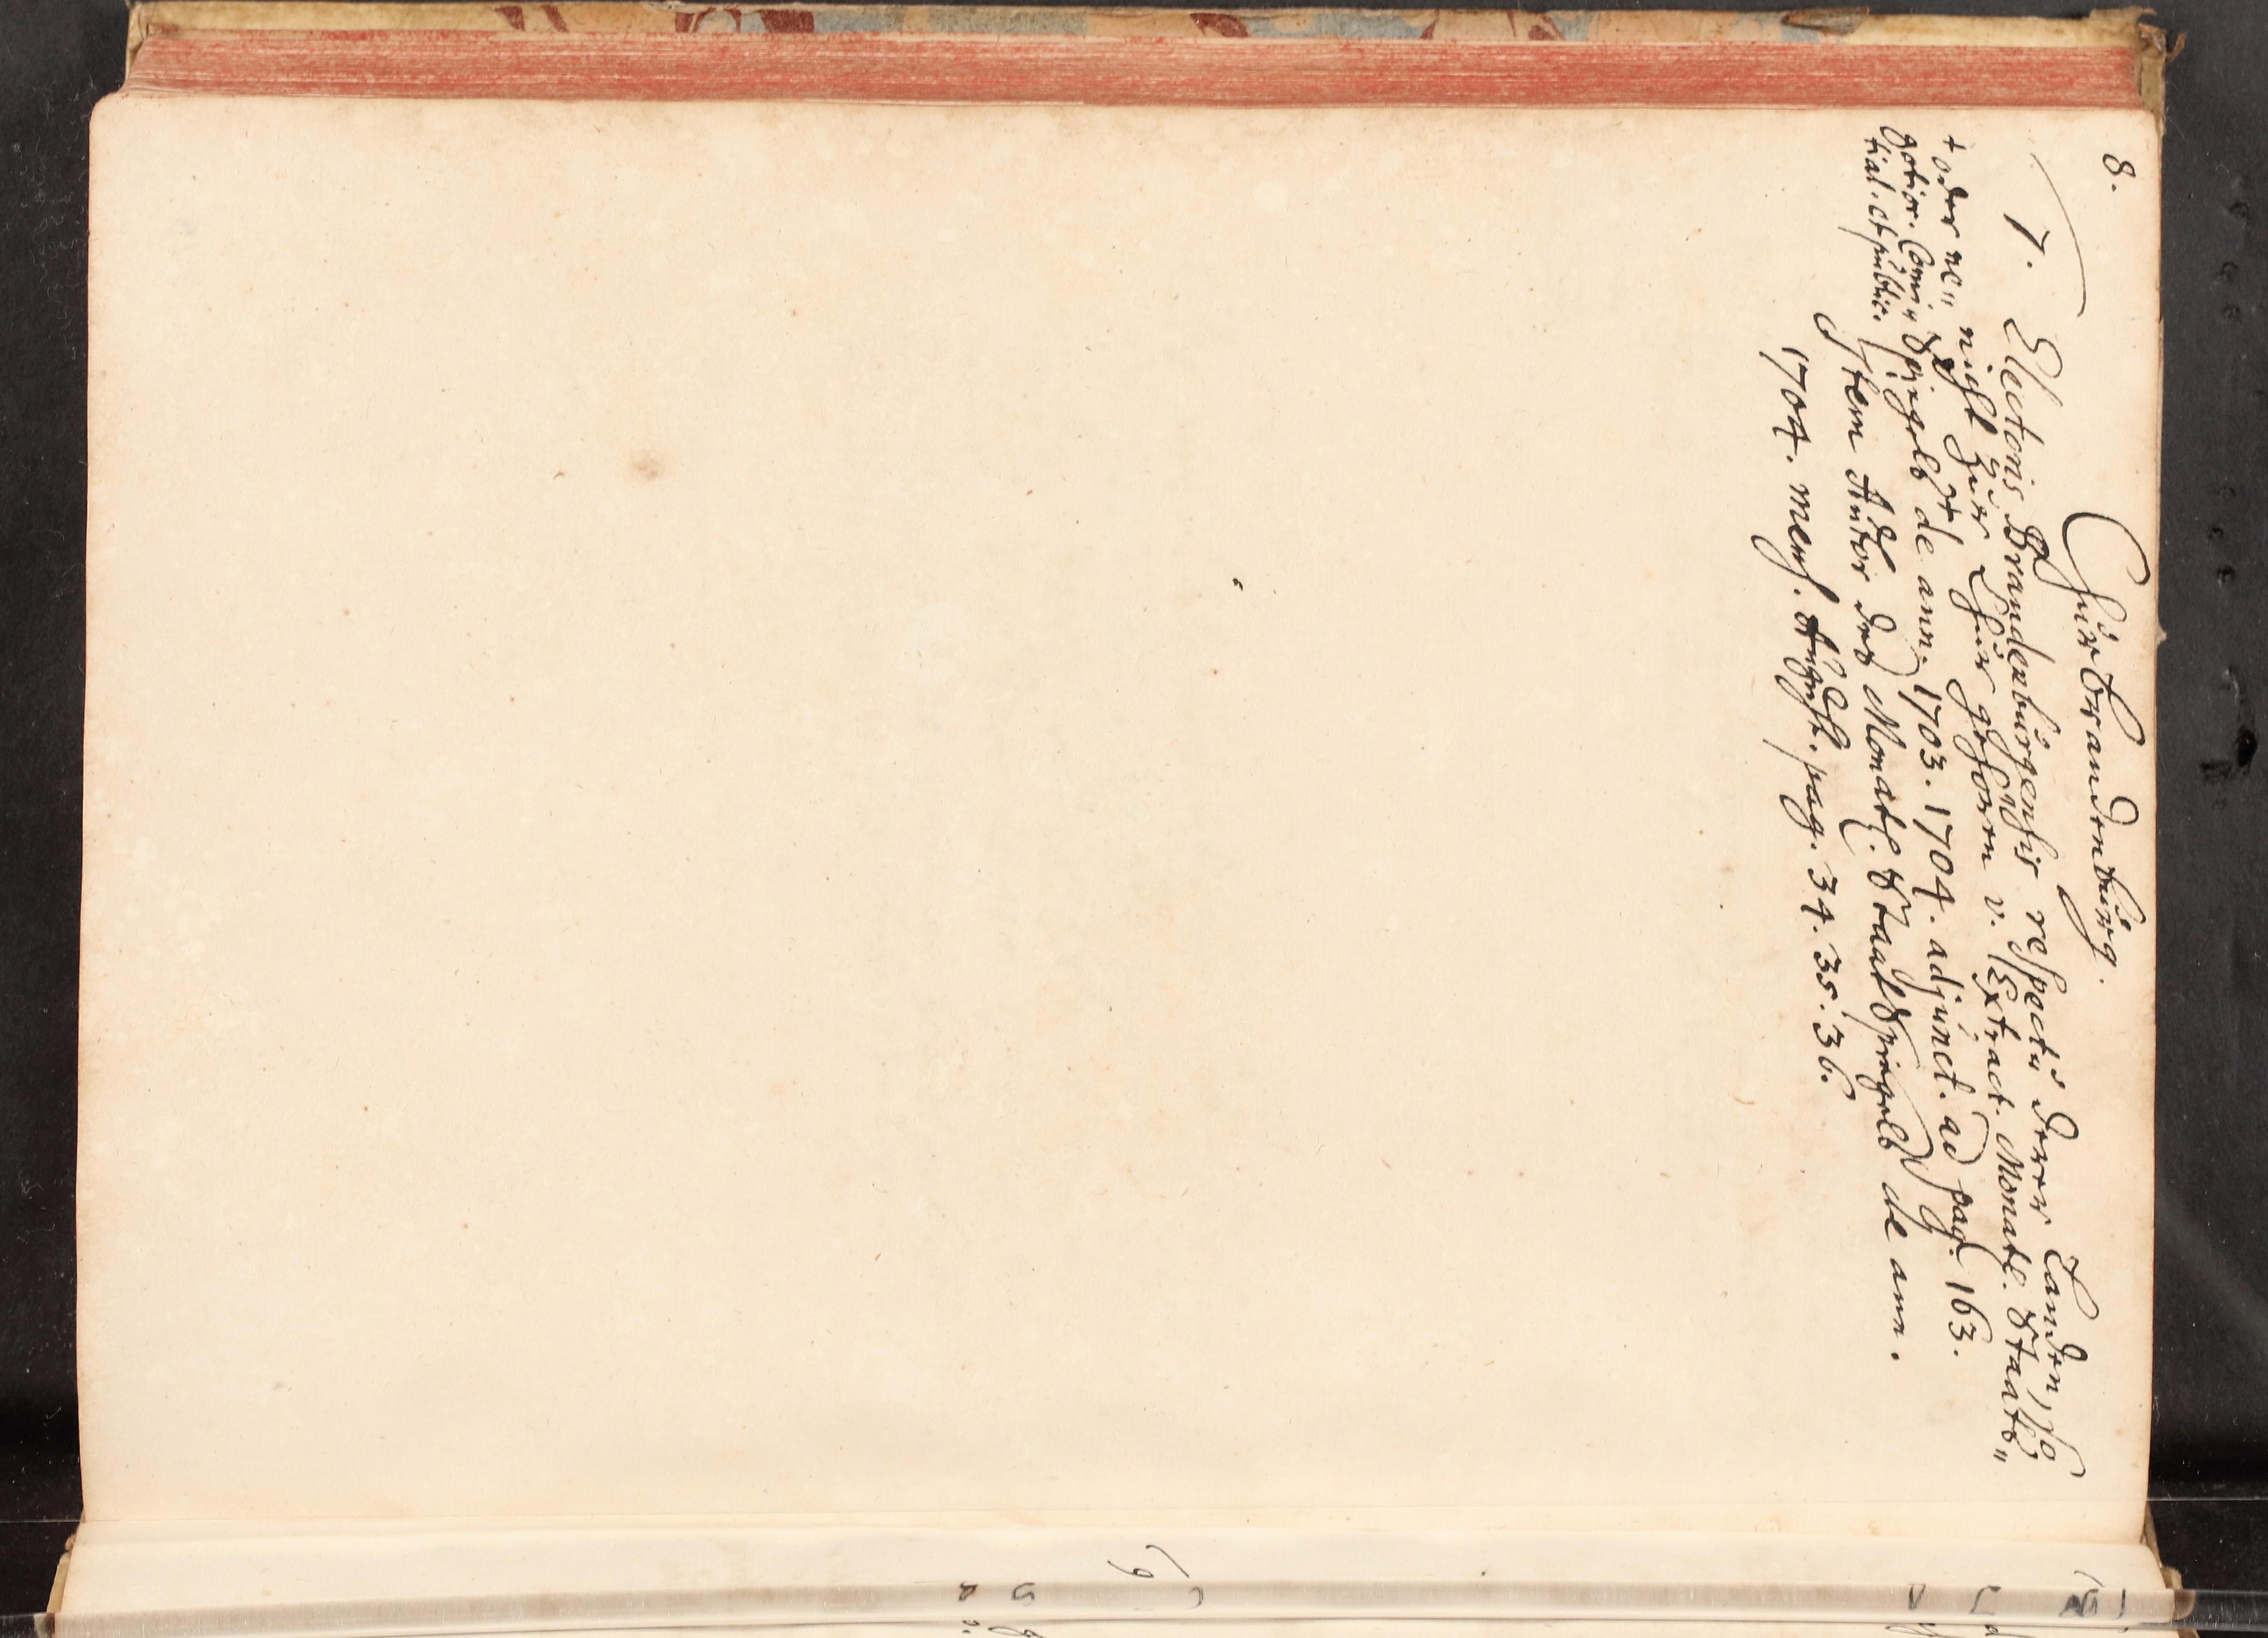 8.
ChurBrandenburg.
1. Electoris Brandenburgensis respectu derer Landen, so
nicht zur Chur gehören v. Extract. Monatl. Staats"
Spiegels + de ann. 1703. 1704. adjunct. ad pag. 163.
Item Autor des Monatl. Staat Spiegels de ann.
1704. mens. August. pag. 34. 35. 36.
+ oder ne"
gotior. Comi"
tial. et public.